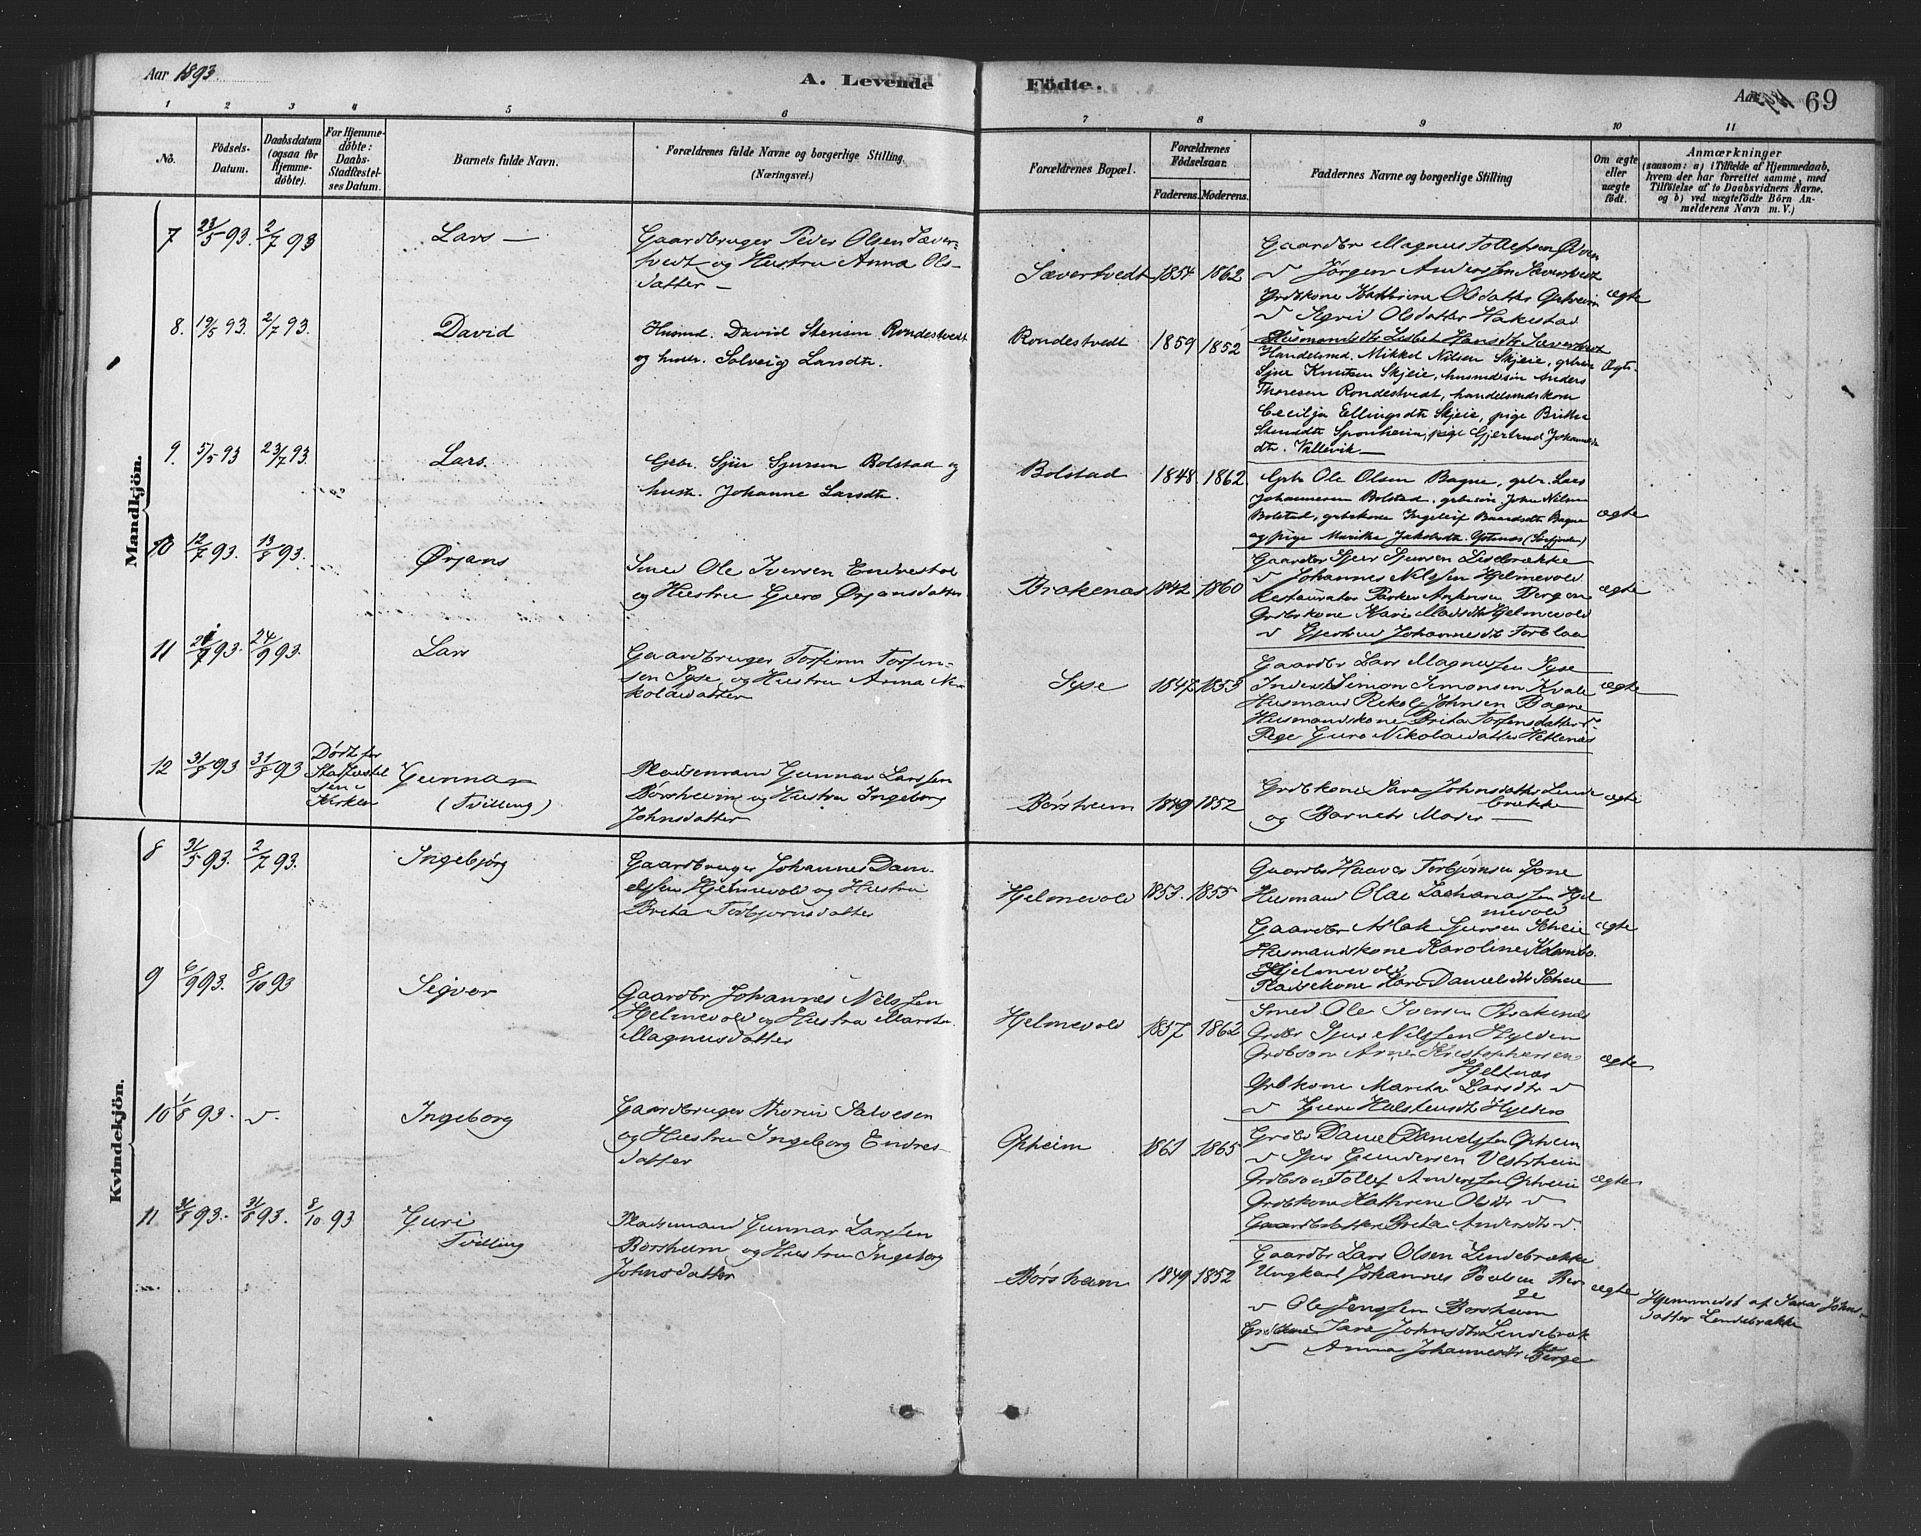 Aar 1893.
A. Levende Födte.
Aar 1893 69
1 2 3 4 5 6 7 8 9 10 11
No.
Födsels-Datum.
Daabsdatum (ogsaa for Hjemme-döbte).
For Hjemme-döbte: Daabs-Stadfæstel-ses Datum.
Barnets fulde Navn.
Forældrenes fulde Navne og borgerlige Stilling.
(Næringsvei.)
Forældrenes Bopæl.
Forældrenes Födselsaar.
Faderens. Moderens.
Faddernes Navne og borgerlige Stilling
Om ægte eller uægte födt.
Anmærkninger
(saasom: a) i Tilfælde af Hjemmedaab,
hvem der har forrettet samme, med
Tilföielse af to Daabsvidners Navne,
og b) ved uægtefödte Börn An-
melderens Navn m. V.)
Mandkjön.
7 23/5 93. 2/7 93 Lars —
Gaardbruger Peder Olsen Sæver-
tvedt og Hustru Anna Ols-
datter —
Sævertvedt 1854 1862
Gaardbr Magnus Tollefsen Ødven
v Jørgen Anderssen Sævertvedt
Grdbkone Kathrine Olsdatter Opheim
v Sigrid Olsdatter Hakestad
Husmandsdtr Lisbet Hansdtr Sævertvedt
ægte
8. 19/5 93. 2/7 93. David
Husmd. David Steinsen Rondestvedt
og hustr. Solveig Larsdtr.
Rondestvedt 1859 1852
Handelsmd. Mikkel Nilsen Skjeie, grbrsøn
Sjur Knutsen Skjeie, husmdssøn Anders
Thoresen Rondestvedt, handelsmdskone
Cecilja Ellingsdtr Skjeie, pige Britha
Steinsdtr Sponheim, pige Gjertrud Johannes-
dtr. Vallevik —
Ægte
9. 5/5 93 23/7 93. Lars.
Grbr. Sjur Sjursen Bolstad og
hustr. Johanne Larsdtr.
Bolstad 1848 1862
Grbr Ole Olsen Bagne, grbr. Lars
Johannesen Bolstad, grbrsøn John Nilsen
Bolstad, grbrkone Ingeleif Baardsdtr Bagne
og pige Marithe Jakobsdtr.
ægte
10 12/7 93. 13/8 93. Ørjans
Smed Ole Iversen Endrestol
og Hustru Guro Ørjansdatter
Brakenæs 1842 1860
Gaardbr Sjur Sjursen Lindebrække
v Johannes Nilssen Hjelmevold
Restauratør Parker Bergen
Grdbkone Kari Madsdtr Hjelmevold
v Gjertrud Johannesdtr Torblaa
ægte
11 93. 24/9 93. Lars
Gaardbruger Torfinn Torfin-
sen Syse og Hustru Anna Ni-
kolaidatter
Syse 1847 1853
Gaardbr Lars Magnessen Syse
Inderst Simon Simonsen Kvale
Husmand Rikolf Johnsen Bagne
Husmandskone Brita Torfinsdatter v
Pige Guro Nikolaidatter Hetlenæs
ægte
12 31/8 93 31/8 93 Dødt før
Stadfæstel-
sen i
Kirken
Gunnar
(Tvilling)
Pladsemand Gunnar Larssen
Børsheim og Hustru Ingeborg
Johnsdatter
Børsheim 1849 1852
Grdbkone Sara Johnsdatter Linde-
brække
og Barnets Moder —
ægte
Kvindekjön.
8 31/5 93. 2/7 93. Ingebjørg
Gaardbruger Johannes Dani-
elssen Hjelmevold og Hustru
Brita Torbjørnsdatter
Hjelmevold 1853. 1855
Gaardbr Haavar Torbjørnsen Spone
Husmand Olai Zachariassen Hjel-
mevold
Gaardbr Aslak Sjursen Skeie
Husmandskone Karoline
Hjelmevold
Pladsekone Kari Danielsdtr Skeie
ægte
9 6/9 93. 8/10 93 Sigvor
Gaardbr Johannes Nilssen
Hjelmevold og Hustru Marita
Magnusdatter
Hjelmevold 1857 1862
Smed Ole Iversen Brakenæs
Grdbr Sjur Nilssen Hylden
Grdbrson Arne Kristophersen
Hjeltnæs
Grbkone Marita Larsdtr v
v Guro Halstensdtr Hylden
ægte
10 1/8 93. v. Ingeborg
Gaardbruger Thorie Salvesen
og Hustru Ingeborg Endres-
datter
Opheim 1861 1865
Grdbr Daniel Danielssen Opheim
v Sjur Gundersen Vestrheim
Grdbson Tollef Anderssen Opheim
Grdbkone Kathrine Olsdtr v
Gaardbdatter Brita Andersdtr v
ægte
11 31/8 93. 31/8 93. 8/10 93 Guri
Tvilling
Pladsemand Gunnar Larssen
Borsheim og Hustru Ingeborg
Johnsdatter
Børsheim 1849 1852
Gaardbr Lars Olsen Lindebrække
Ungkarl Johannes Poulsen Ber-
ge
v Ole Jenssen Borsheim
Grdbkone Sara Johnsdtr Lindebræk-
ke
v Anna Johannesdtr Berge
ægte
Hjemmedøbt af Sara Johns-
datter Lindebrække